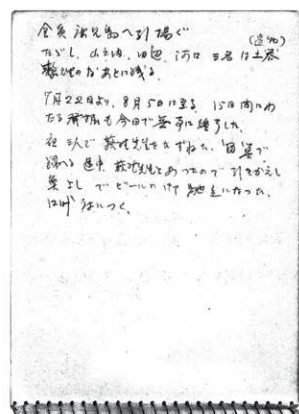 全員 鹿児島へ引揚ぐ
ただし、山之内、田辺、河口 三君は土器
整理のためあとに残る。
7月22日より、8月5日に至る 15日間にわ
たる 発掘も今日で無事に終了した。
夜 三人で 先生をたずねた。留守で
帰へる 途中 先生とあったので 引きかえし
よし でビールの御馳走になった。
12時 ねにつく。